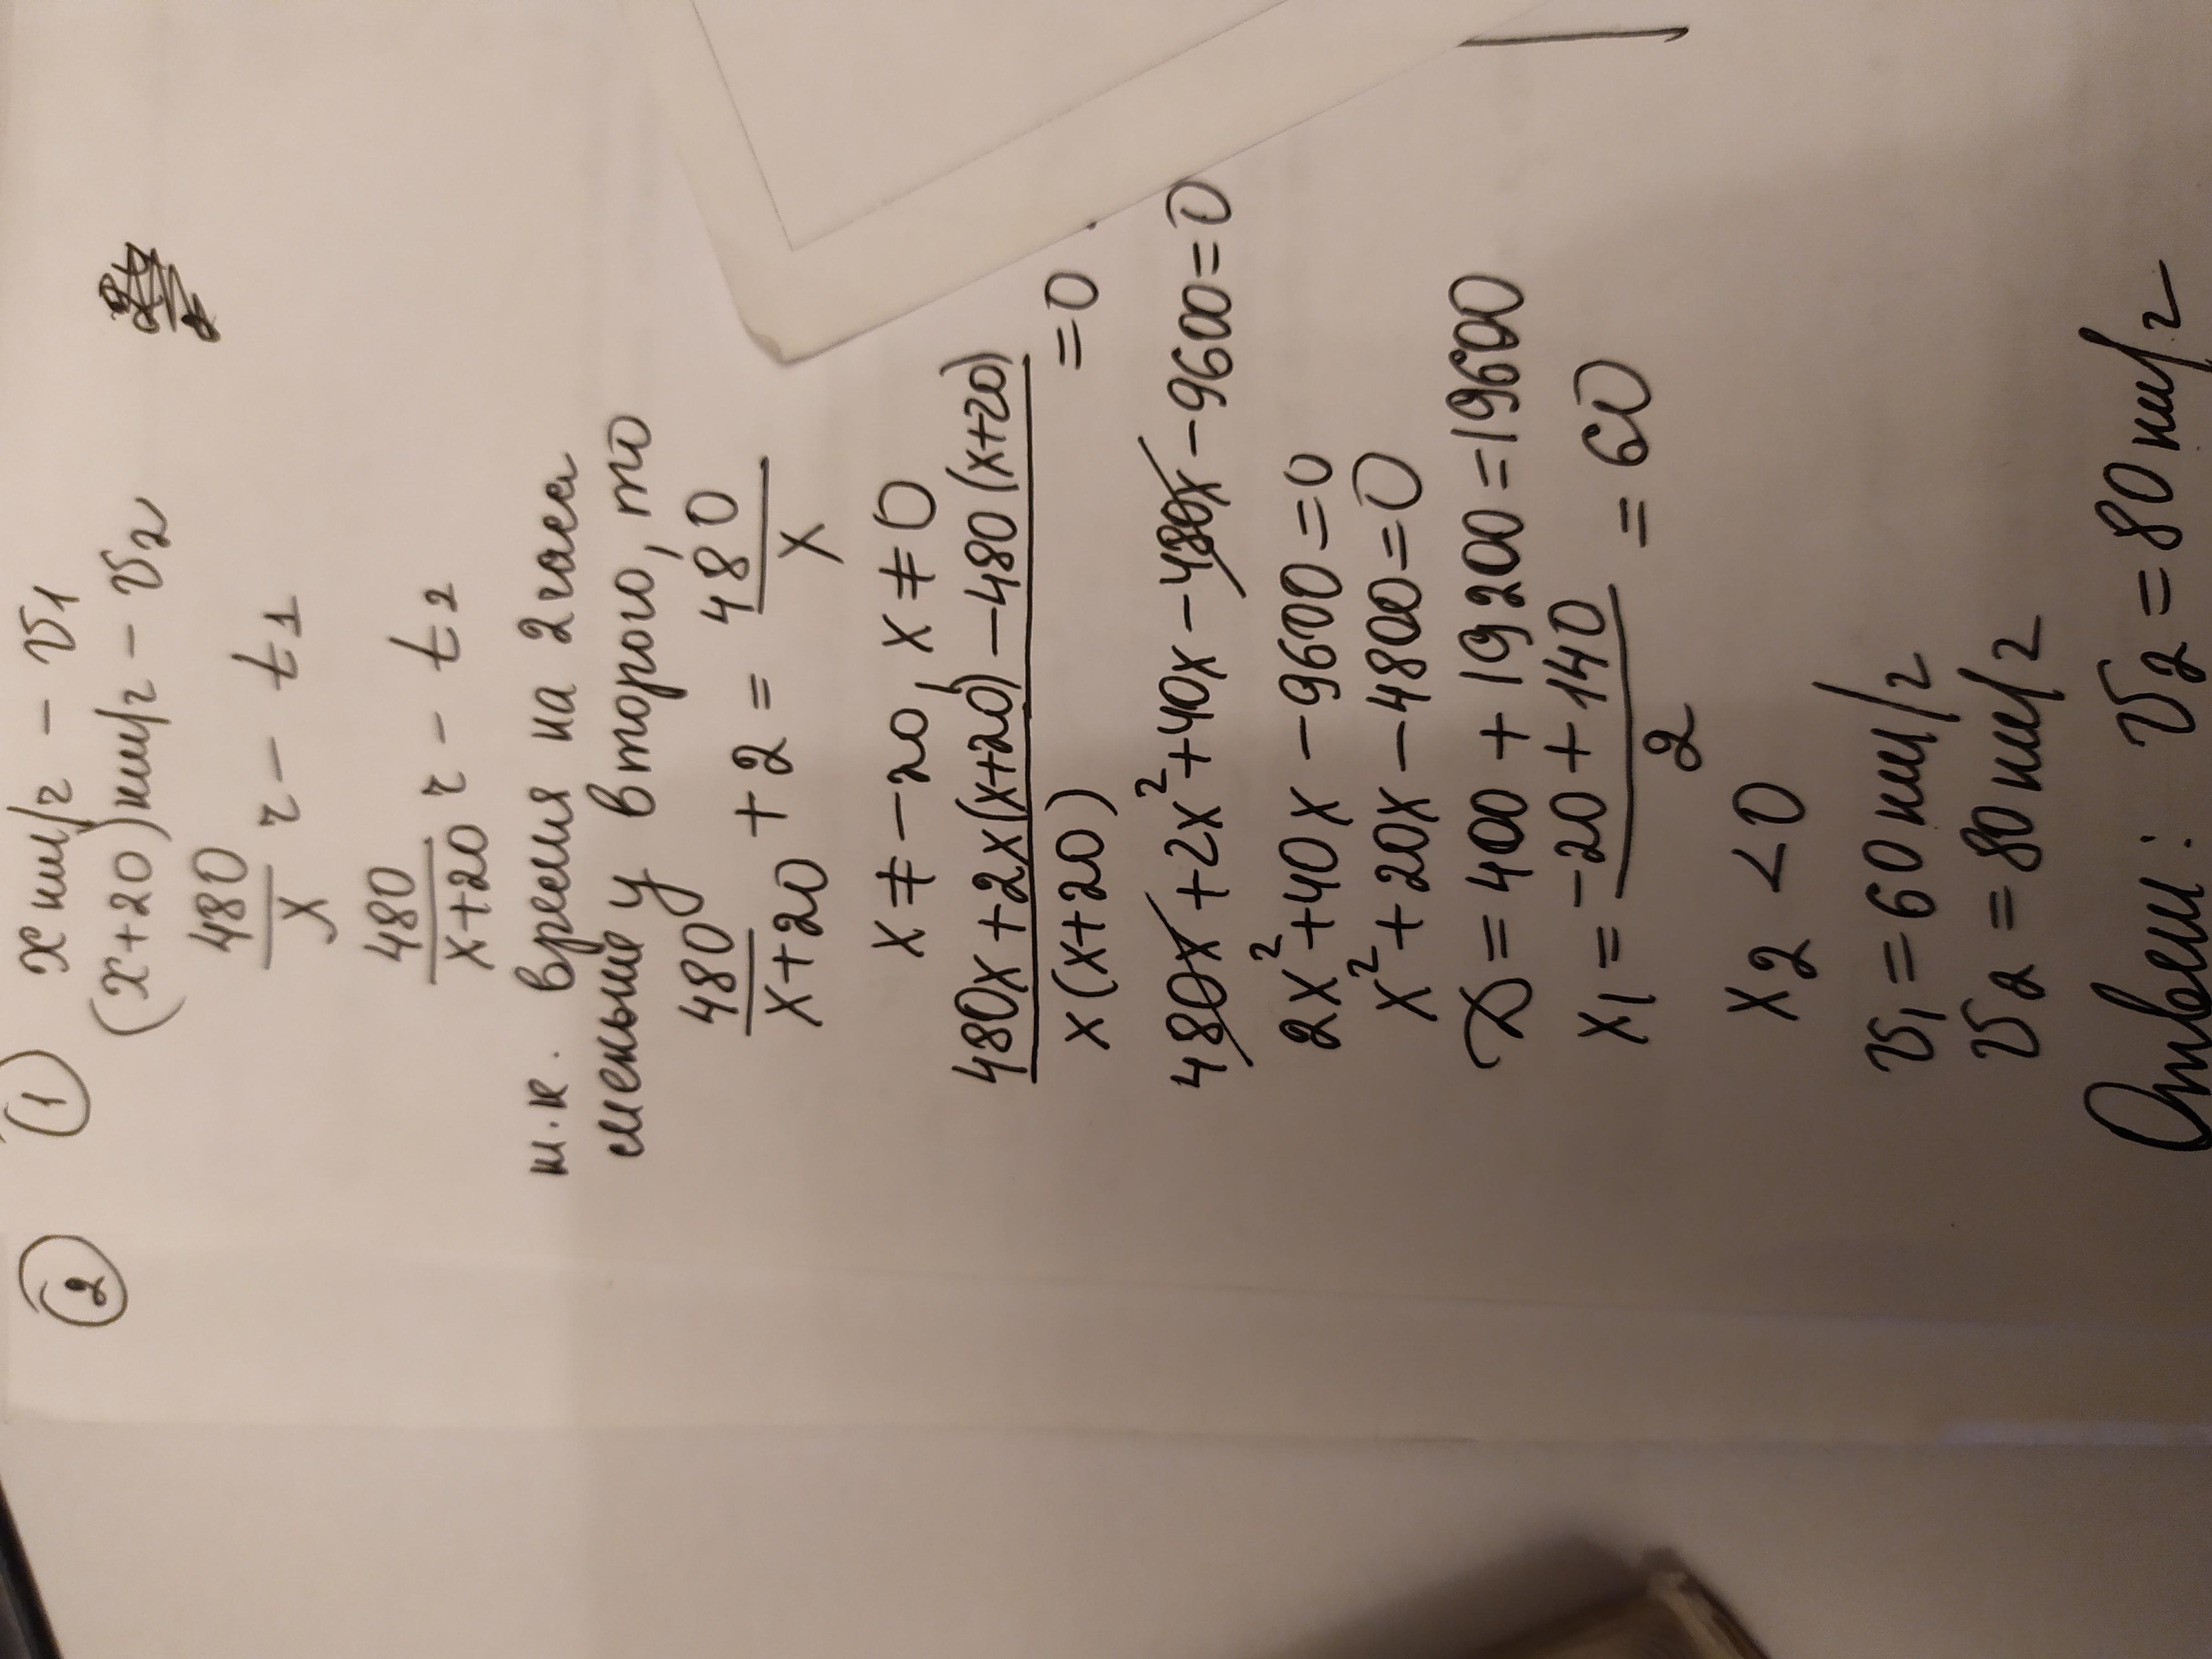 ② ① x км/ч – v₁
(x+20) км/ч – v₂
480/x ч – t₁
480/x+20 ч – t₂
т.к. время на 2 часа
меньше у второго, то
480/x+20 + 2 = 480/x
x ≠ –20, x ≠ 0
480x + 2x(x+20) – 480(x+20)/x(x+20) = 0
480x + 2x² + 40x – 480x – 9600 = 0
2x² + 40x – 9600 = 0
x² + 20x – 4800 = 0
D = 400 + 19200 = 19600
x₁ = –20 + 140/2 = 60
x₂ < 0
v₁ = 60 км/ч
v₂ = 80 км/ч
Ответ: v₂ = 80 км/ч